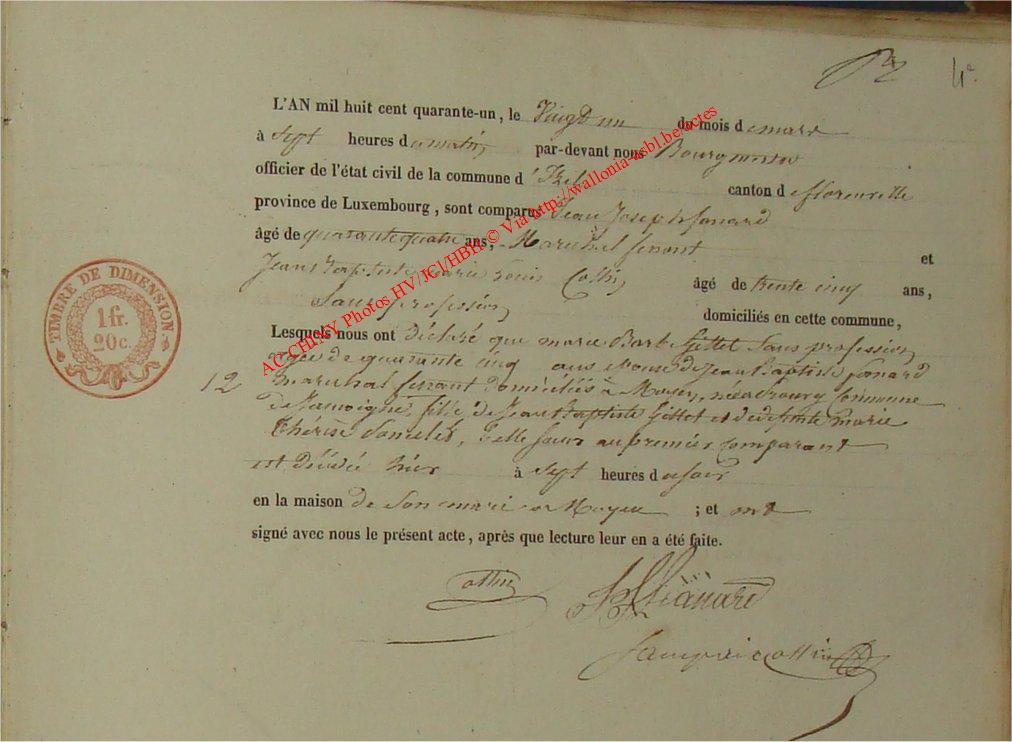 4e
L'AN mil huit cent quarante-un, le Vingt un du mois de mars
à Sept heures du matin, par-devant nous Bourgmestre
officier de l'état civil de la commune d'Izel canton de florenville
province de Luxembourg, sont comparus Jean Joseph
âgé de quarante quatre ans, Marechal ferrant et
Jean Baptiste Marie Louis Collin, âgé de trente cinq ans,
Sans profession, domiciliés en cette commune,
Lesquels nous ont déclaré que marie Barbe Gillet Sans profession,
agée de quarante cinq ans epouse de Jean Baptiste
12 marechal ferrant domiciliés à Moyen, née a commune
de Jamoigne, fille de Jean Baptiste Gillet et de defunte marie
Therese belle soeur au premier comparant
est décédée hier à Sept heures du soir
en la maison de Son mari a Moyen ; et ont
signé avec nous le présent acte, après que lecture leur en a été faite.
TIMBRE DE DIMENSION
1 fr.
20 c.
AC CHINY Photos HV/JCl/HBH © Via http://wallonia-asbl.be/actes